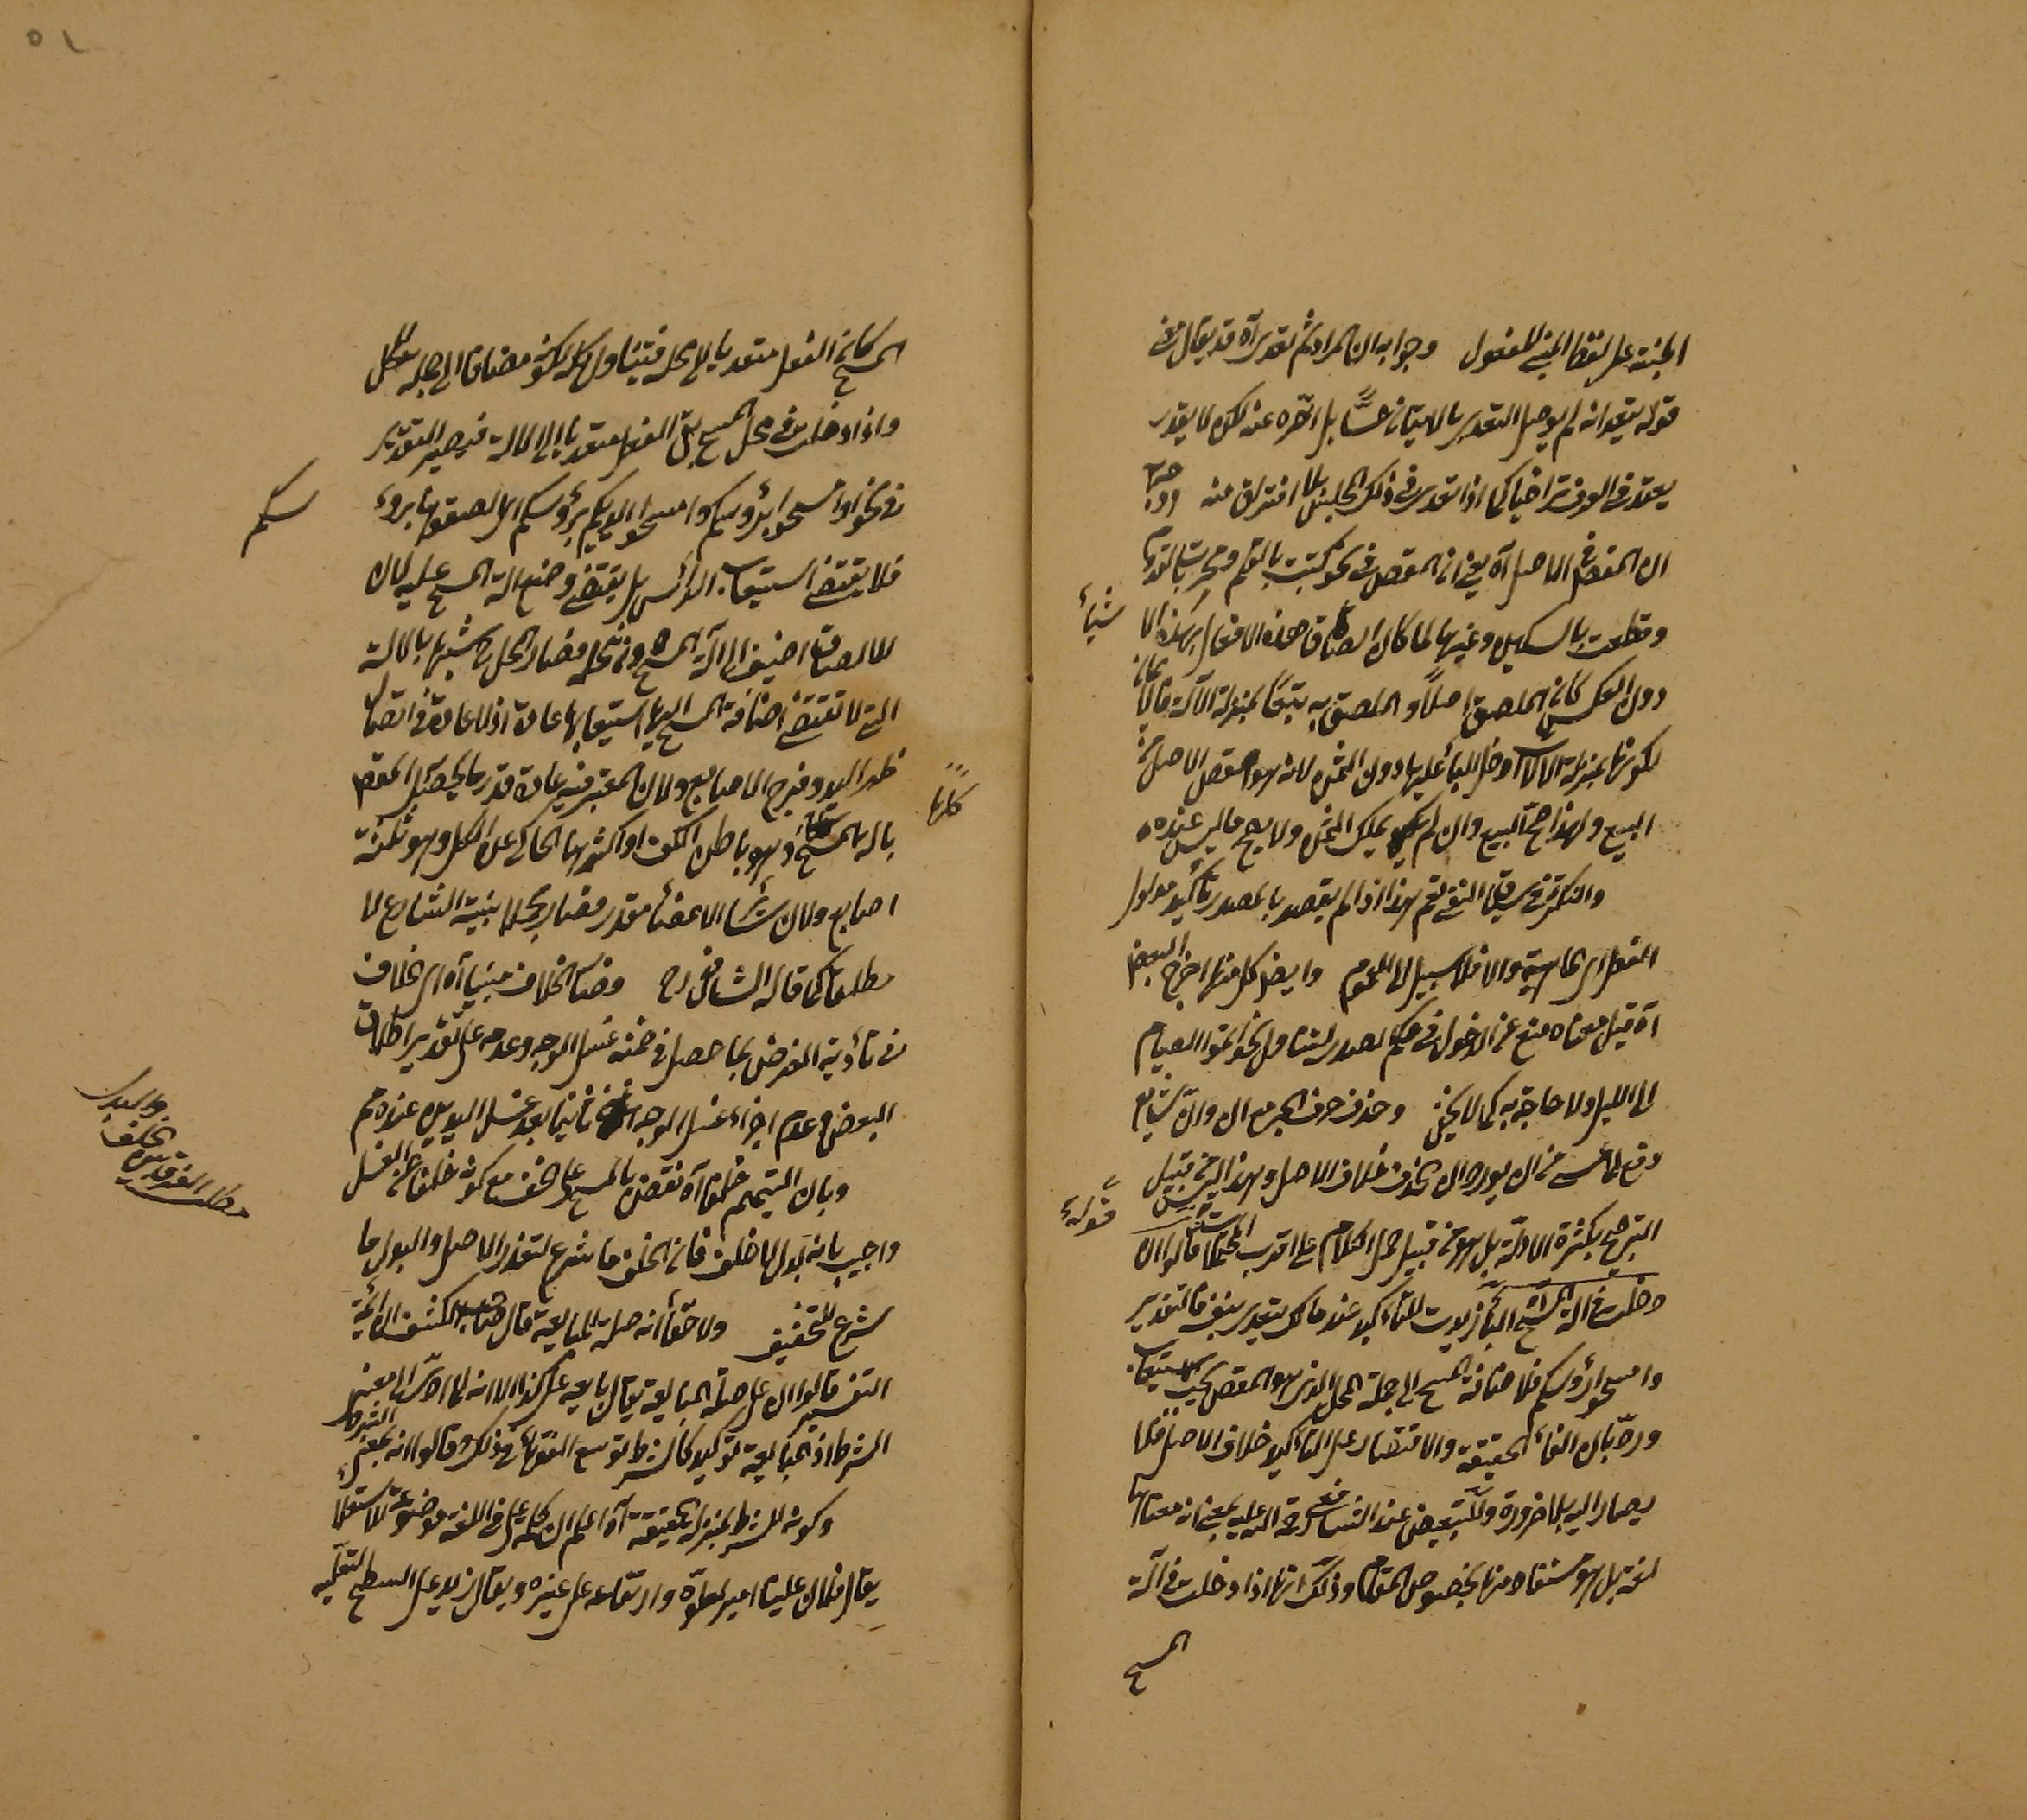 المبنية على لفظ المبني للمفعول وجوابه ان المراد ثم تعدى آه قد يقال معنى
قوله بعد انه لم يوصل التعدير بالاتيان حسًّا بل اخره عنه لكن لا يقدر
يعتد في العرف تراخيا كما اذا تعدى في ذلك المجلس بلا افتراق منه
ان المقصود في الاصل آه يعني ان المقصود في نحو كتبت بالقلم ونجرت بالقدوم
وقطعت بالسكين وغيرها لما كان الصاق هذه الافعال بهذه الاشياء
دون العكس كان الملصق اصلاً والملصق به تبعًا بمنزلة الآلة
لكونها بمنزلة الآلات ودخل الباء عليها دون المثمن لانه هو المقصود الاصلي
البيع ولهذا صح البيع وان لم يملك الثمن ولا يصح ما ليس عنده
والنكرة في سياق النفي تعم هذا اذا لم يقصد بالمصدر تأكيد مدلول
الفعل اي الماهية والا فلا سبيل الى العموم وايضا كل منها اخرج البعض
آه قيل معناه منع عن الدخول في حكم الصدر ليتناول نحو اتموا الصيام
الى الليل ولا حاجة به كما لا يخفى وحذف حرف الجر مع ان وانّ شايع
دفع لما عسى من ان يورد ان الحذف خلاف الاصل وهذا ليس من قبيل
الترجيح بكثرة الادلة بل هو من قبيل حمل الكلام على اقرب المحتملات قوله قالوا ان
دخلت في آلة المسح الباء زيدت للتأكيد عند مالك يتعدى بنفسه فالتقدير
وامسحوا رؤسكم فلاضافة المسح الى جملة المحل الذي هو المقصود يجب الاستيعاب
وردّ بان الغاء الحقيقة والاقتصار على التأكيد خلاف الاصل فلا
يصار اليه بلا ضرورة وللتبعيض عند الشافعي رحمة الله عليه بمعنى انه معناها
لغة بل هو مستفاد منها بخصوص المقام وذلك انها اذا دخلت في آلة
المسح
المسح كان الفعل متعديا الى محله فيتناول كله لكونه مضافا الى جملة المحل
واذا دخلت في محل المسح بقي الفعل متعديا الى الآلة فيصير التقدير
في نحو وامسحوا برؤسكم وامسحوا ايديكم برؤسكم اي الصقوها برؤسكم
فلا يقتضي استيعاب الرأس بل يقتضي وضع آلة المسح عليه لان
الالصاق اضيف الى آلة المسح دون محله فصار المحل شبيها بالآلة
التي لا تقتضي اضافة المسح اليها استيعابها عادة اذ لا عادة في اتصال
ظهر اليد وفرج الاصابع ولان المعتبر فيه عادة قدر ما يحصل المقصود
بآلة المسح كلها وهو باطن الكف او اكثرها الحاكي عن الكل وهو ثلثة
اصابع ولان سائر الاعضاء مقدر فصار مجملا بينه الشارع لا
مطلقا كما قاله الشافعي رح وهذا الخلاف مبنيا آه اي الخلاف
في تأدية الفرض بما حصل في ضمنه غسل الوجه وعدمه على تقدير اطلاق
البعض عدم اجزاء غسل الوجه ثانيا بعد غسل اليدين عنده ثم
وبان التيمم خلفا آه نقض بالمسح على الخف مع كونه خلفا عن الغسل
واجيب بانه بدل لا خلف فان الخلف ما شرع لتعذر الاصل والبدل ما
شرع للتخفيف ولاحقا انه صلة المبايعة قال صاحب الكشف ان ائمة
التفسير قالوا ان على صلة المبايعة يقال بايعه على كذا الا انه لما ادى الى معنى
الشرط اذ المبايعة توكيد كالشرط توسع الفقهاء في ذلك وقالوا انه بمعنى الشرط
وكونه للشرط بمنزلة الحقيقة آه اعلم ان كلمة على في اللغة موضوعة للاستعلاء
يقال فلان علينا امير لعلوه وارتفاعه على غيره ويقال زيد على السطح لتعليه
مطلب الفرق بين
الخلف
والبدل